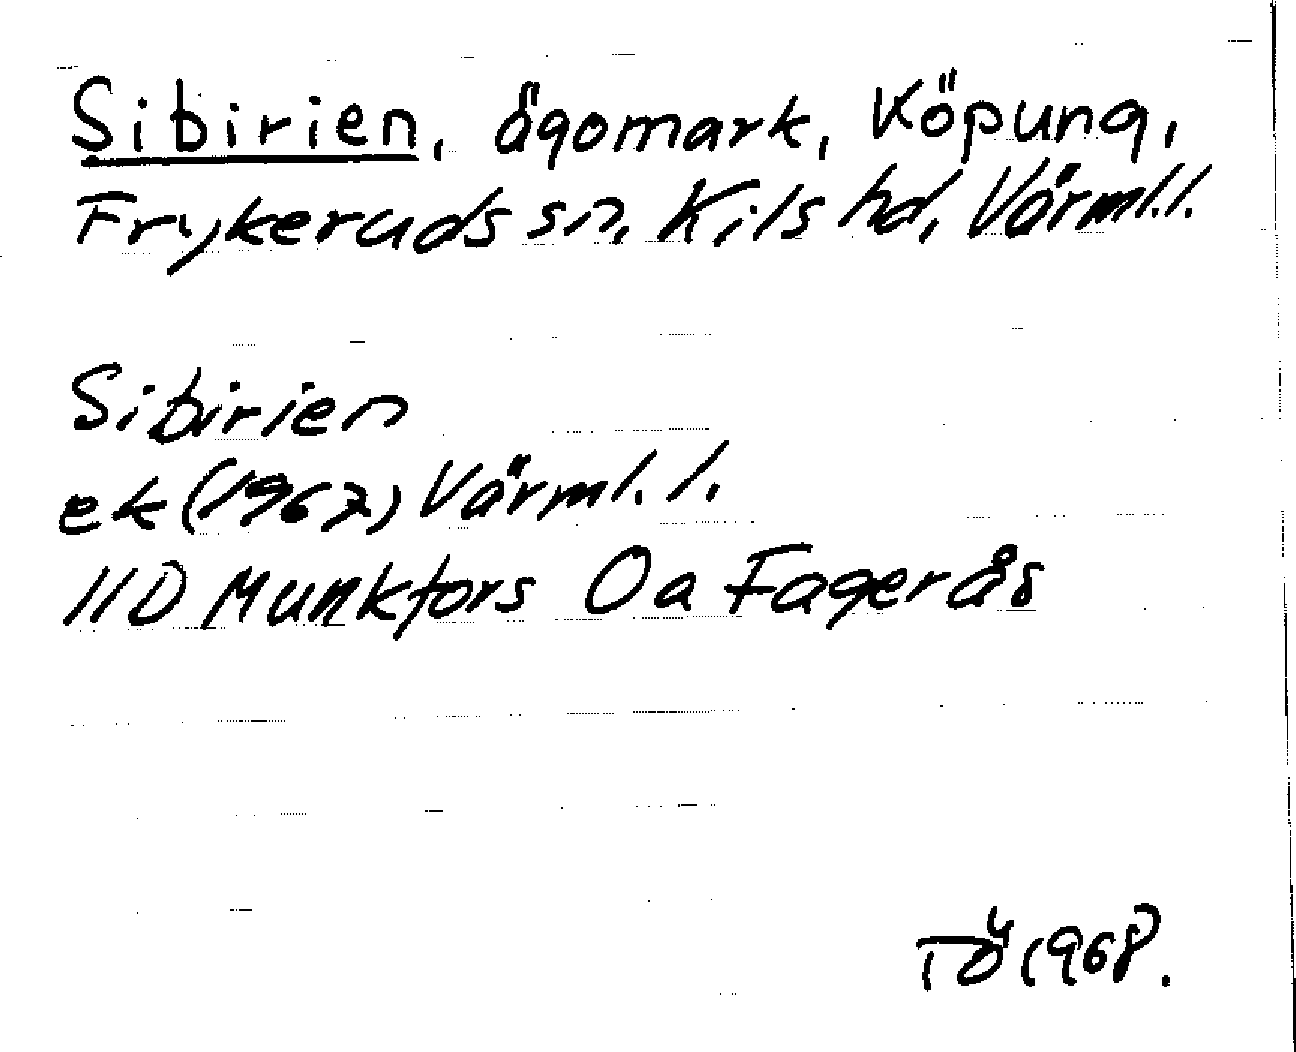 Sibirien, ägomark, Köpung,
Frykeruds sn, Kils hd, Värml.l.
Sibirien
ek (1967) Värml. l.
11D Munkfors 0a Fagerås
TÖ 1968.